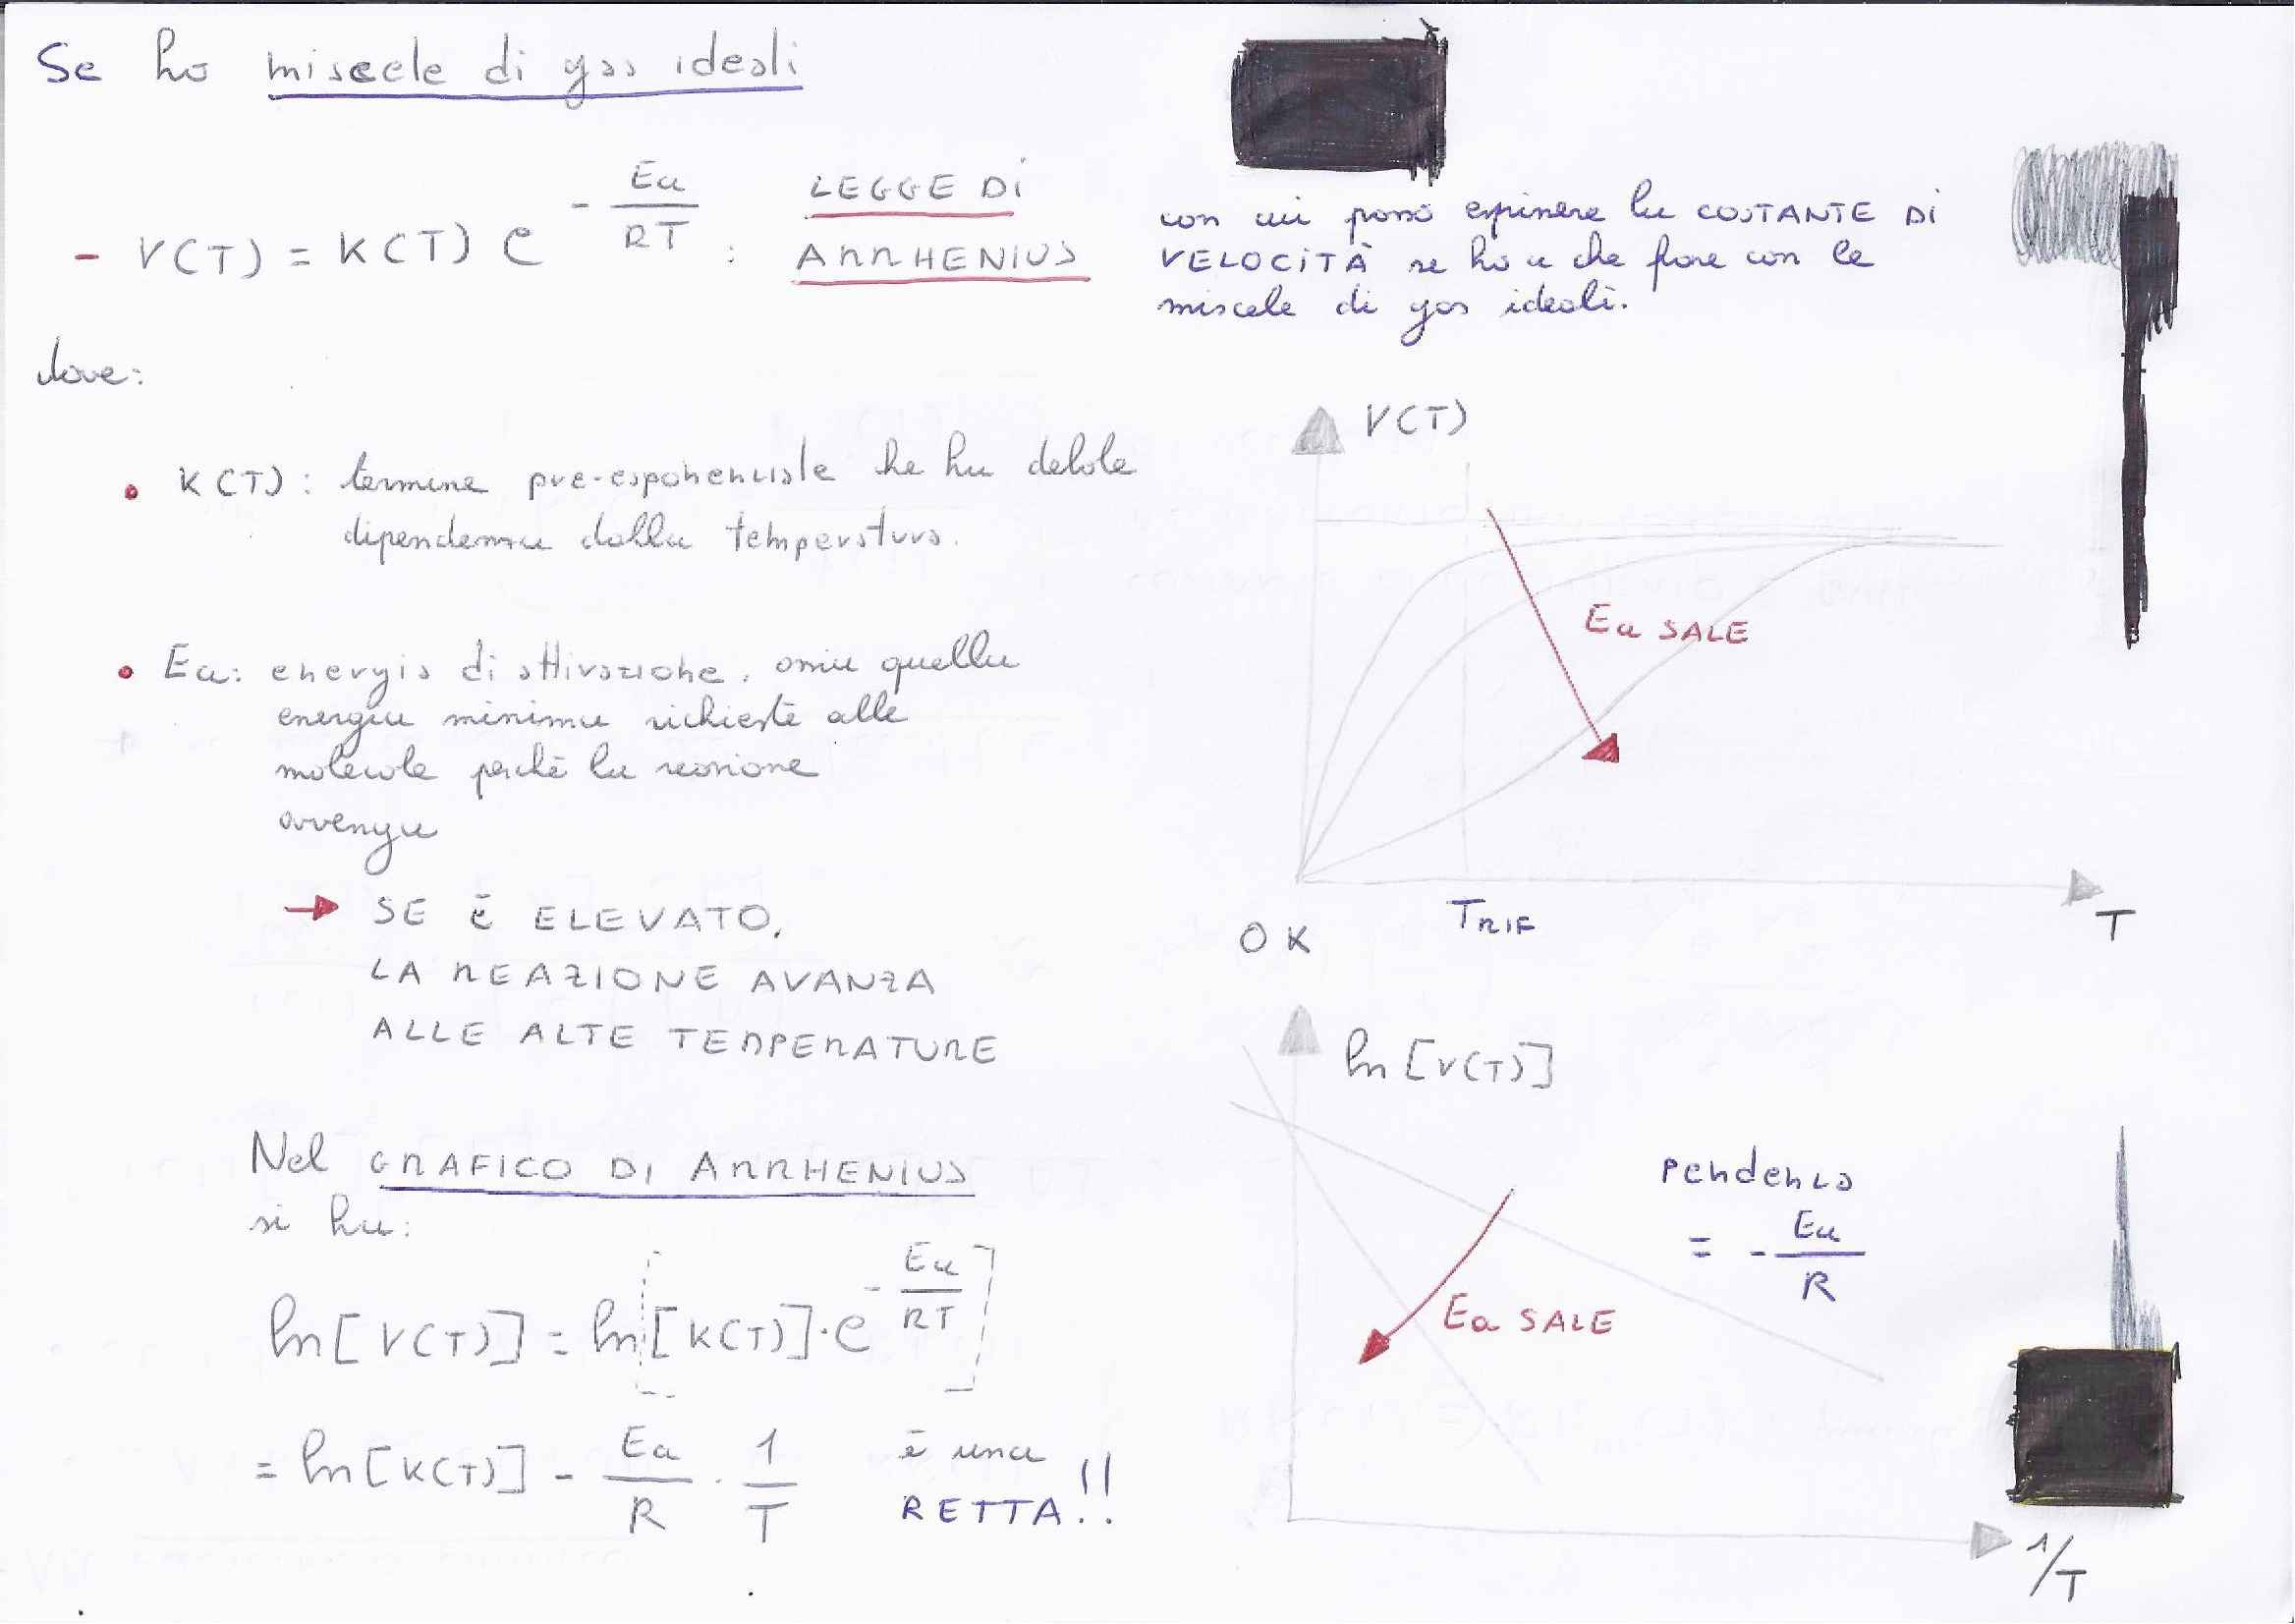 Se ho miscele di gas ideali
- V(T) = K(T) e^(-Ea/RT) : LEGGE DI ARRHENIUS
con cui posso esprimere la COSTANTE DI
VELOCITÀ se ho a che fare con le
miscele di gas ideali.
dove:
• K(T): termine pre-esponenziale che ha debole
dipendenza dalla temperatura.
• Ea: energia di attivazione, ossia quella
energia minima richieste alle
molecole perché la reazione
avvenga
→ SE È ELEVATO,
LA REAZIONE AVANZA
ALLE ALTE TEMPERATURE
V(T)
Ea SALE
0 K
TRIF
T
Nel GRAFICO DI ARRHENIUS
si ha:
ln[V(T)] = ln[[K(T)]·e^(-Ea/RT)]
= ln[K(T)] - Ea/R · 1/T è una
RETTA!!
ln[V(T)]
pendenza
= - Ea/R
Ea SALE
1/T